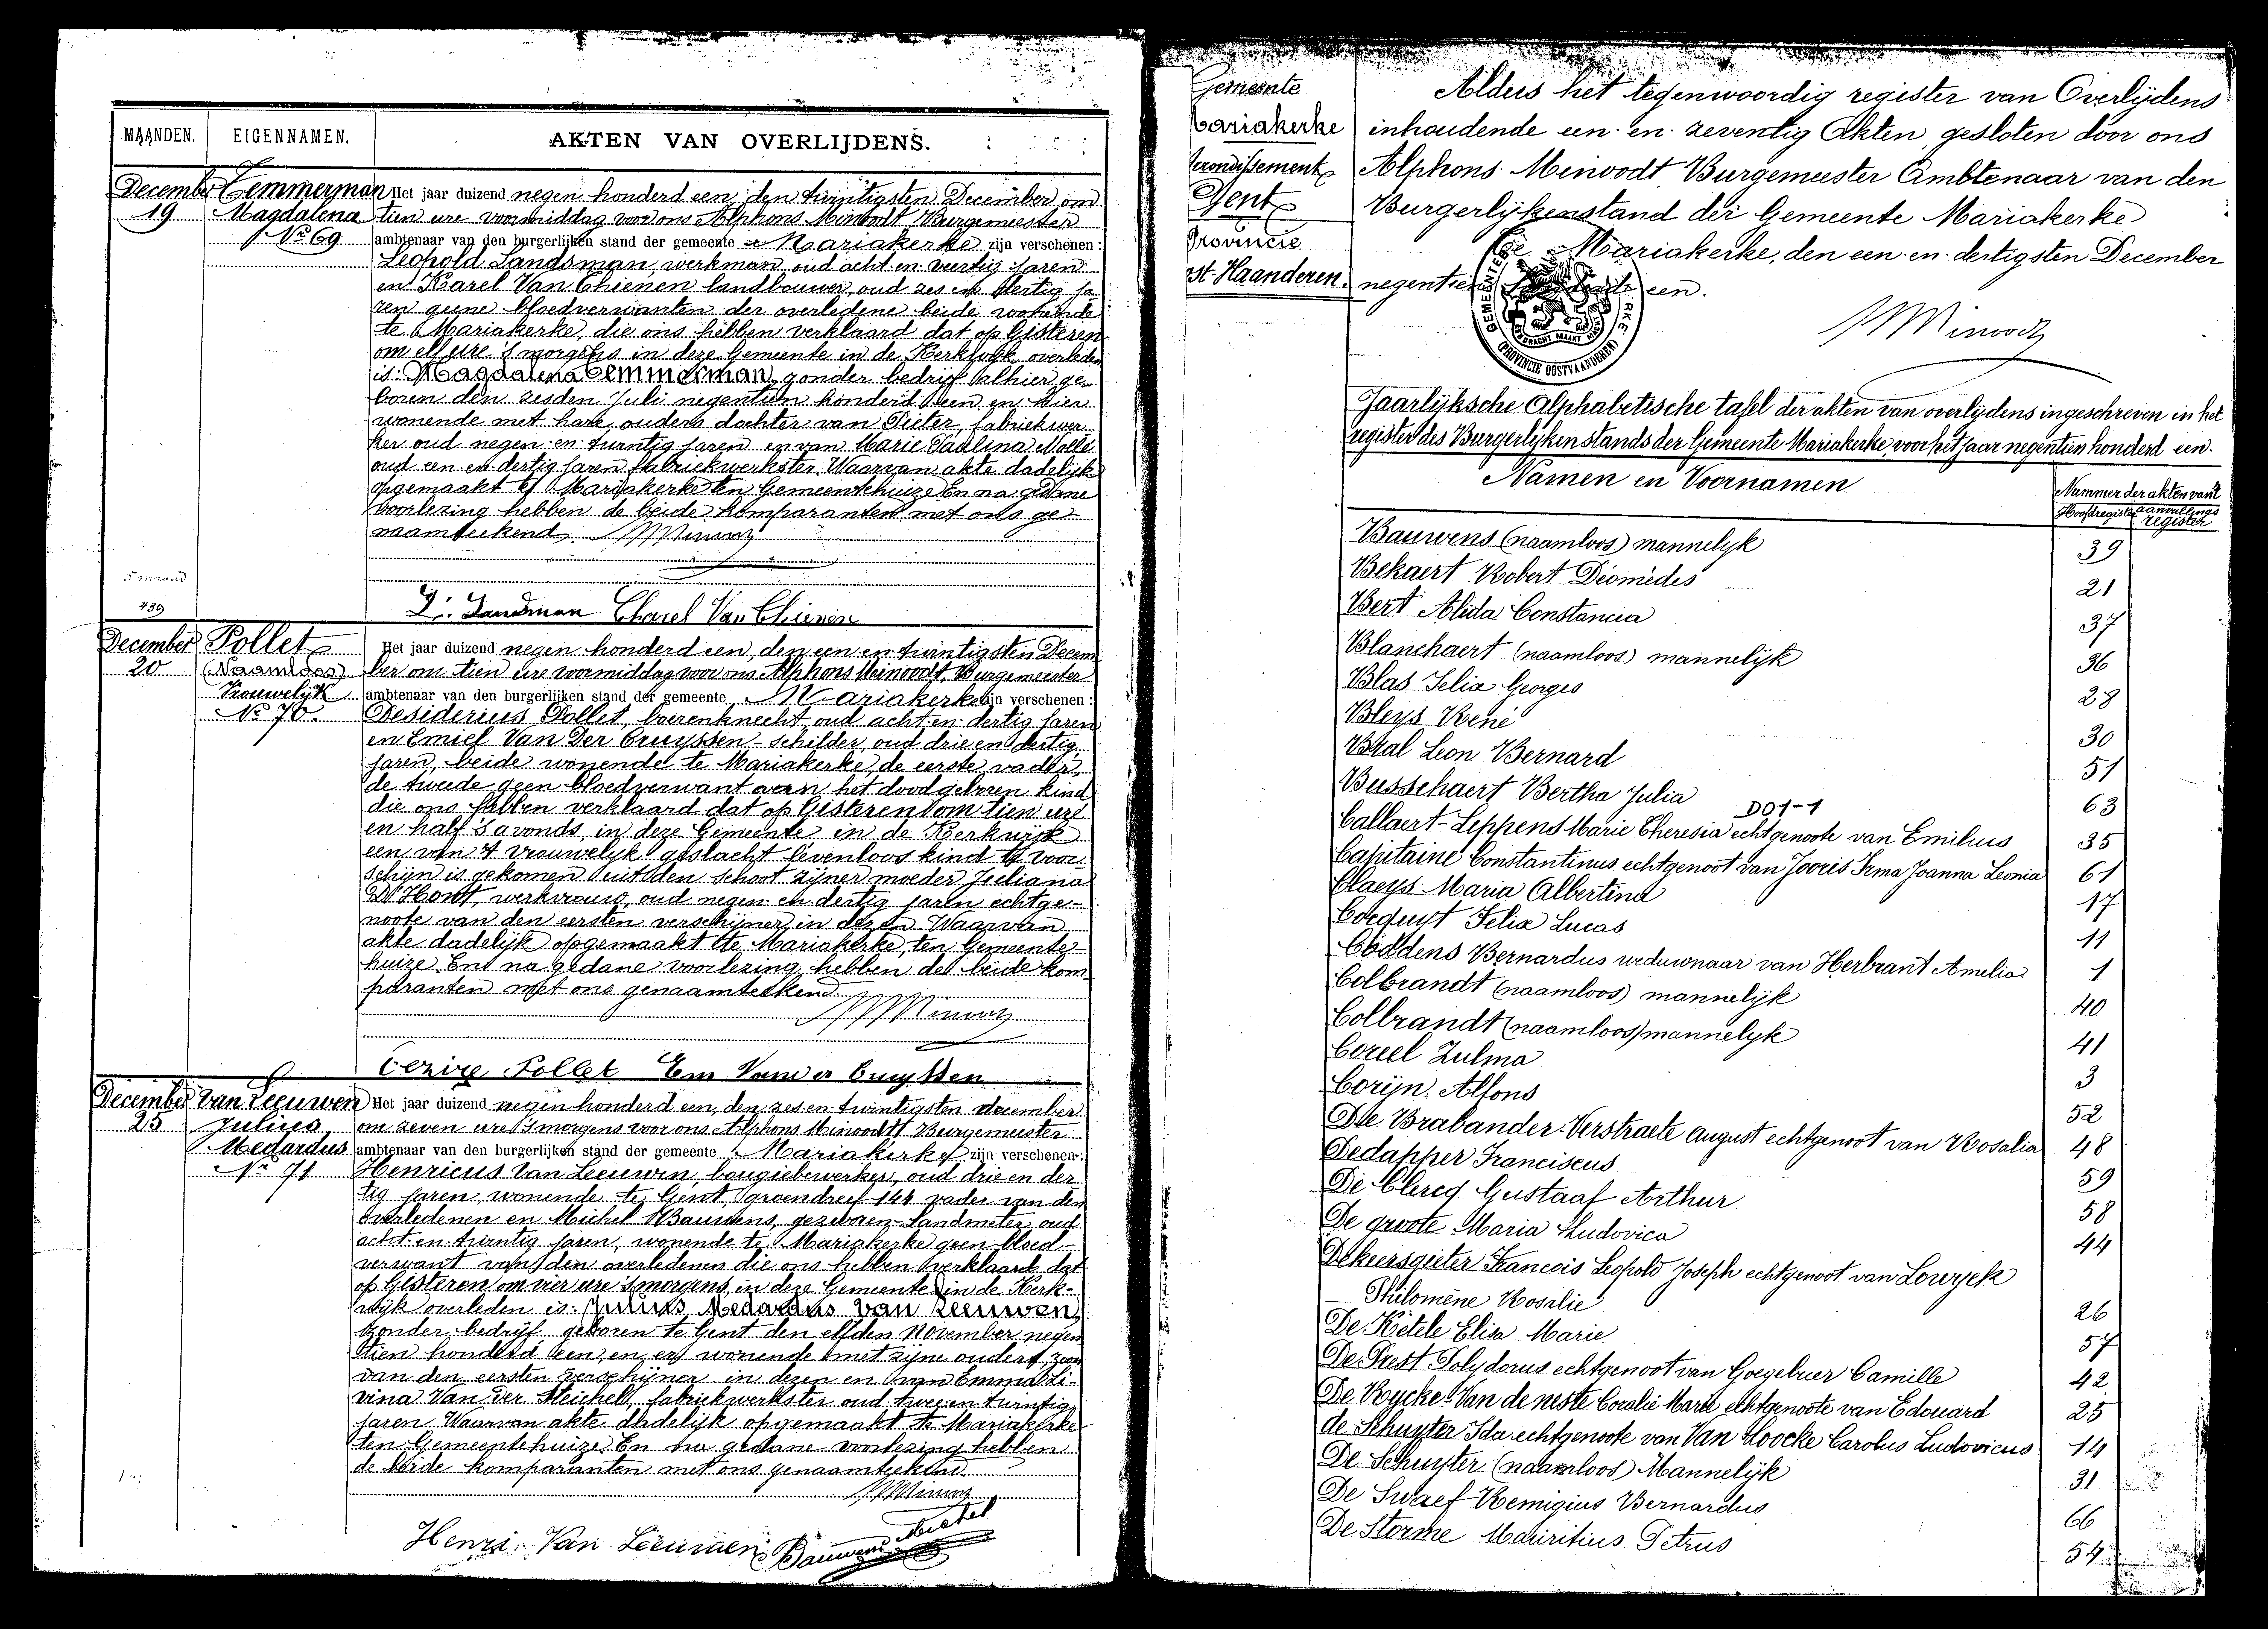 MAANDEN.
EIGENNAMEN.
AKTEN VAN OVERLIJDENS.
December
19
Temmerman
Magdalena
No 69
Het jaar duizend negen honderd een, den twintigsten December om
tien ure voormiddag voor ons Alphons Minoodt Burgemeester
ambtenaar van den burgerlijken stand der gemeente Mariakerke zijn verschenen:
Leopold Landsman, werkman, oud acht en veertig jaren
en Karel Van Thienen landbouwer, oud zes en dertig ja-
ren geene bloedverwanten der overledene beide wonende
te Mariakerke, die ons hebben verklaard dat op Gisteren
om elf ure 's morgens in deze Gemeente in de Kerkwijk overleden
is: Magdalena Temmerman, zonder bedrijf alhier ge-
boren den zesden Juli negentien honderd een en hier
wonende met hare ouders dochter van Pieter, fabriekwer-
ker oud negen en twintig jaren en van Marie Paulina Nolle
oud een en dertig jaren fabriekwerkster. Waarvan akte dadelijk
opgemaakt te Mariakerke ten Gemeentehuize En na gedane
voorlezing hebben de beide komparanten met ons ge-
naamteekend. AMinoodt
L. Landman Charel Van Thienen
5 maand.
439
December
20
Pollet
(Naamloos)
Vrouwelijk
No 70.
Het jaar duizend negen honderd een, den een en twintigsten Decem-
ber om tien ure voormiddag voor ons Alphons Minoodt, Burgemeester
ambtenaar van den burgerlijken stand der gemeente Mariakerke zijn verschenen:
Desiderius Pollet, boerenknecht oud acht en dertig jaren
en Emiel Van Der Cruyssen - schilder, oud drie en dertig
jaren, beide wonende te Mariakerke, de eerste vader,
de tweede geen bloedverwant aan het doodgeboren kind
die ons hebben verklaard dat op Gisteren om tien ure
en half 's avonds, in deze Gemeente in de Kerkwijk
een van 't vrouwelijk geslacht levenloos kind te voor
schijn is gekomen uit den schoot zijner moeder Juliana
D'Hont, werkvrouw, oud negen en dertig jaren echtge-
noote van den eersten verschijner in dezen. Waarvan
akte dadelijk opgemaakt te Mariakerke, ten Gemeente-
huize. En na gedane voorlezing, hebben de beide kom-
paranten met ons genaamteekend.
AMinoodt
Cezire Pollet Em Vander Cruyssen
December
25
Van Leeuwen
Julius
Medardus
No 71
Het jaar duizend negen honderd een, den zes en twintigsten december
om zeven ure 's morgens voor ons Alphons Minoodt Burgemeester
ambtenaar van den burgerlijken stand der gemeente Mariakerke zijn verschenen:
Henricus Van Leeuwen, bougiebewerker, oud drie en der-
tig jaren, wonende te Gent, groendreef 144 vader van den
overledenen en Michel Bauwens, gezworen-Landmeter, oud
acht en twintig jaren, wonende te Mariakerke geen bloed-
verwant van den overledenen die ons hebben verklaard dat
op Gisteren om vier ure 's morgens, in deze Gemeente in de Kerk-
wijk overleden is: Julius Medardus Van Leeuwen,
zonder bedrijf, geboren te Gent den elfden November negen
tien honderd een, en er wonende met zijne ouders, zoon
van den eersten verschijner in dezen en van Emma Li-
vina Van Der Steichel, fabriekwerkster oud twee en twintig
jaren. Waarvan akte dadelijk opgemaakt te Mariakerke
ten Gemeentehuize. En na gedane voorlezing hebben
de beide komparanten met ons genaamteekend.
AMinoodt
Henri Van Leeuwen Bauwens Michel
Gemeente
Mariakerke
Arrondissement
Gent
Provincie
Ost-Vlaanderen.
Aldus het tegenwoordig register van Overlijdens
inhoudende een en zeventig Akten, gesloten door ons
Alphons Minoodt Burgemeester Ambtenaar van den
Burgerlijkenstand der Gemeente Mariakerke
Te Mariakerke, den een en dertigsten December
negentien honderd een.
AMinoodt
GEMEENTE RKE
EENDRACHT MAAKT MACHT
(PROVINCIE OOSTVLAANDEREN)
Jaarlijksche Alphabetische tafel der akten van overlijdens ingeschreven in het
register des Burgerlijken stands der Gemeente Mariakerke, voor het jaar negentien honderd een.
Namen en Voornamen
Nummer der akten van 't
Hoofdregister aanvullings register
Bauwens (naamloos) mannelijk 39
Bekaert Robert Diomèdes 21
Bert Alida Constancia 37
Blanchaert (naamloos) mannelijk 36
Blas Felix Georges 28
Bleys René 30
Bral Leon Bernard 51
Busschaert Bertha Julia 63
DO1-1
Callaert-Leppens Marie Theresia echtgenoote van Emilius 35
Capitaine Constantinus echtgenoot van Jooris Irma Joanna Leonia 61
Claeys Maria Albertina 17
Coequyt Felix Lucas 11
Coddens Bernardus weduwnaar van Herbrant Amelia 1
Colbrandt (naamloos) mannelijk 40
Colbrandt (naamloos) mannelijk 41
Coreel Zulma 3
Corijn Alfons 52
De Brabander-Verstraete August echtgenoot van Rosalia 48
Dedapper Franciscus 59
De Clercq Gustaaf Arthur 58
De groote Maria Ludovica 44
Dekeersgieter Francois Leopold Joseph echtgenoot van Lowyck
Philomène Rosalie 26
De Ketele Elisa Marie 57
De Prest Polydorus echtgenoot van Goegebuer Camille 42
De Rycke-Van de neste Coralie Marie echtgenoote van Edouard 25
de Schuyter Ida echtgenoote van Van Loocke Carolus Ludovicus 14
De Schuyter (naamloos) Mannelijk 31
De Swaef Remigius Bernardus 66
De Storme Mauritius Petrus 54